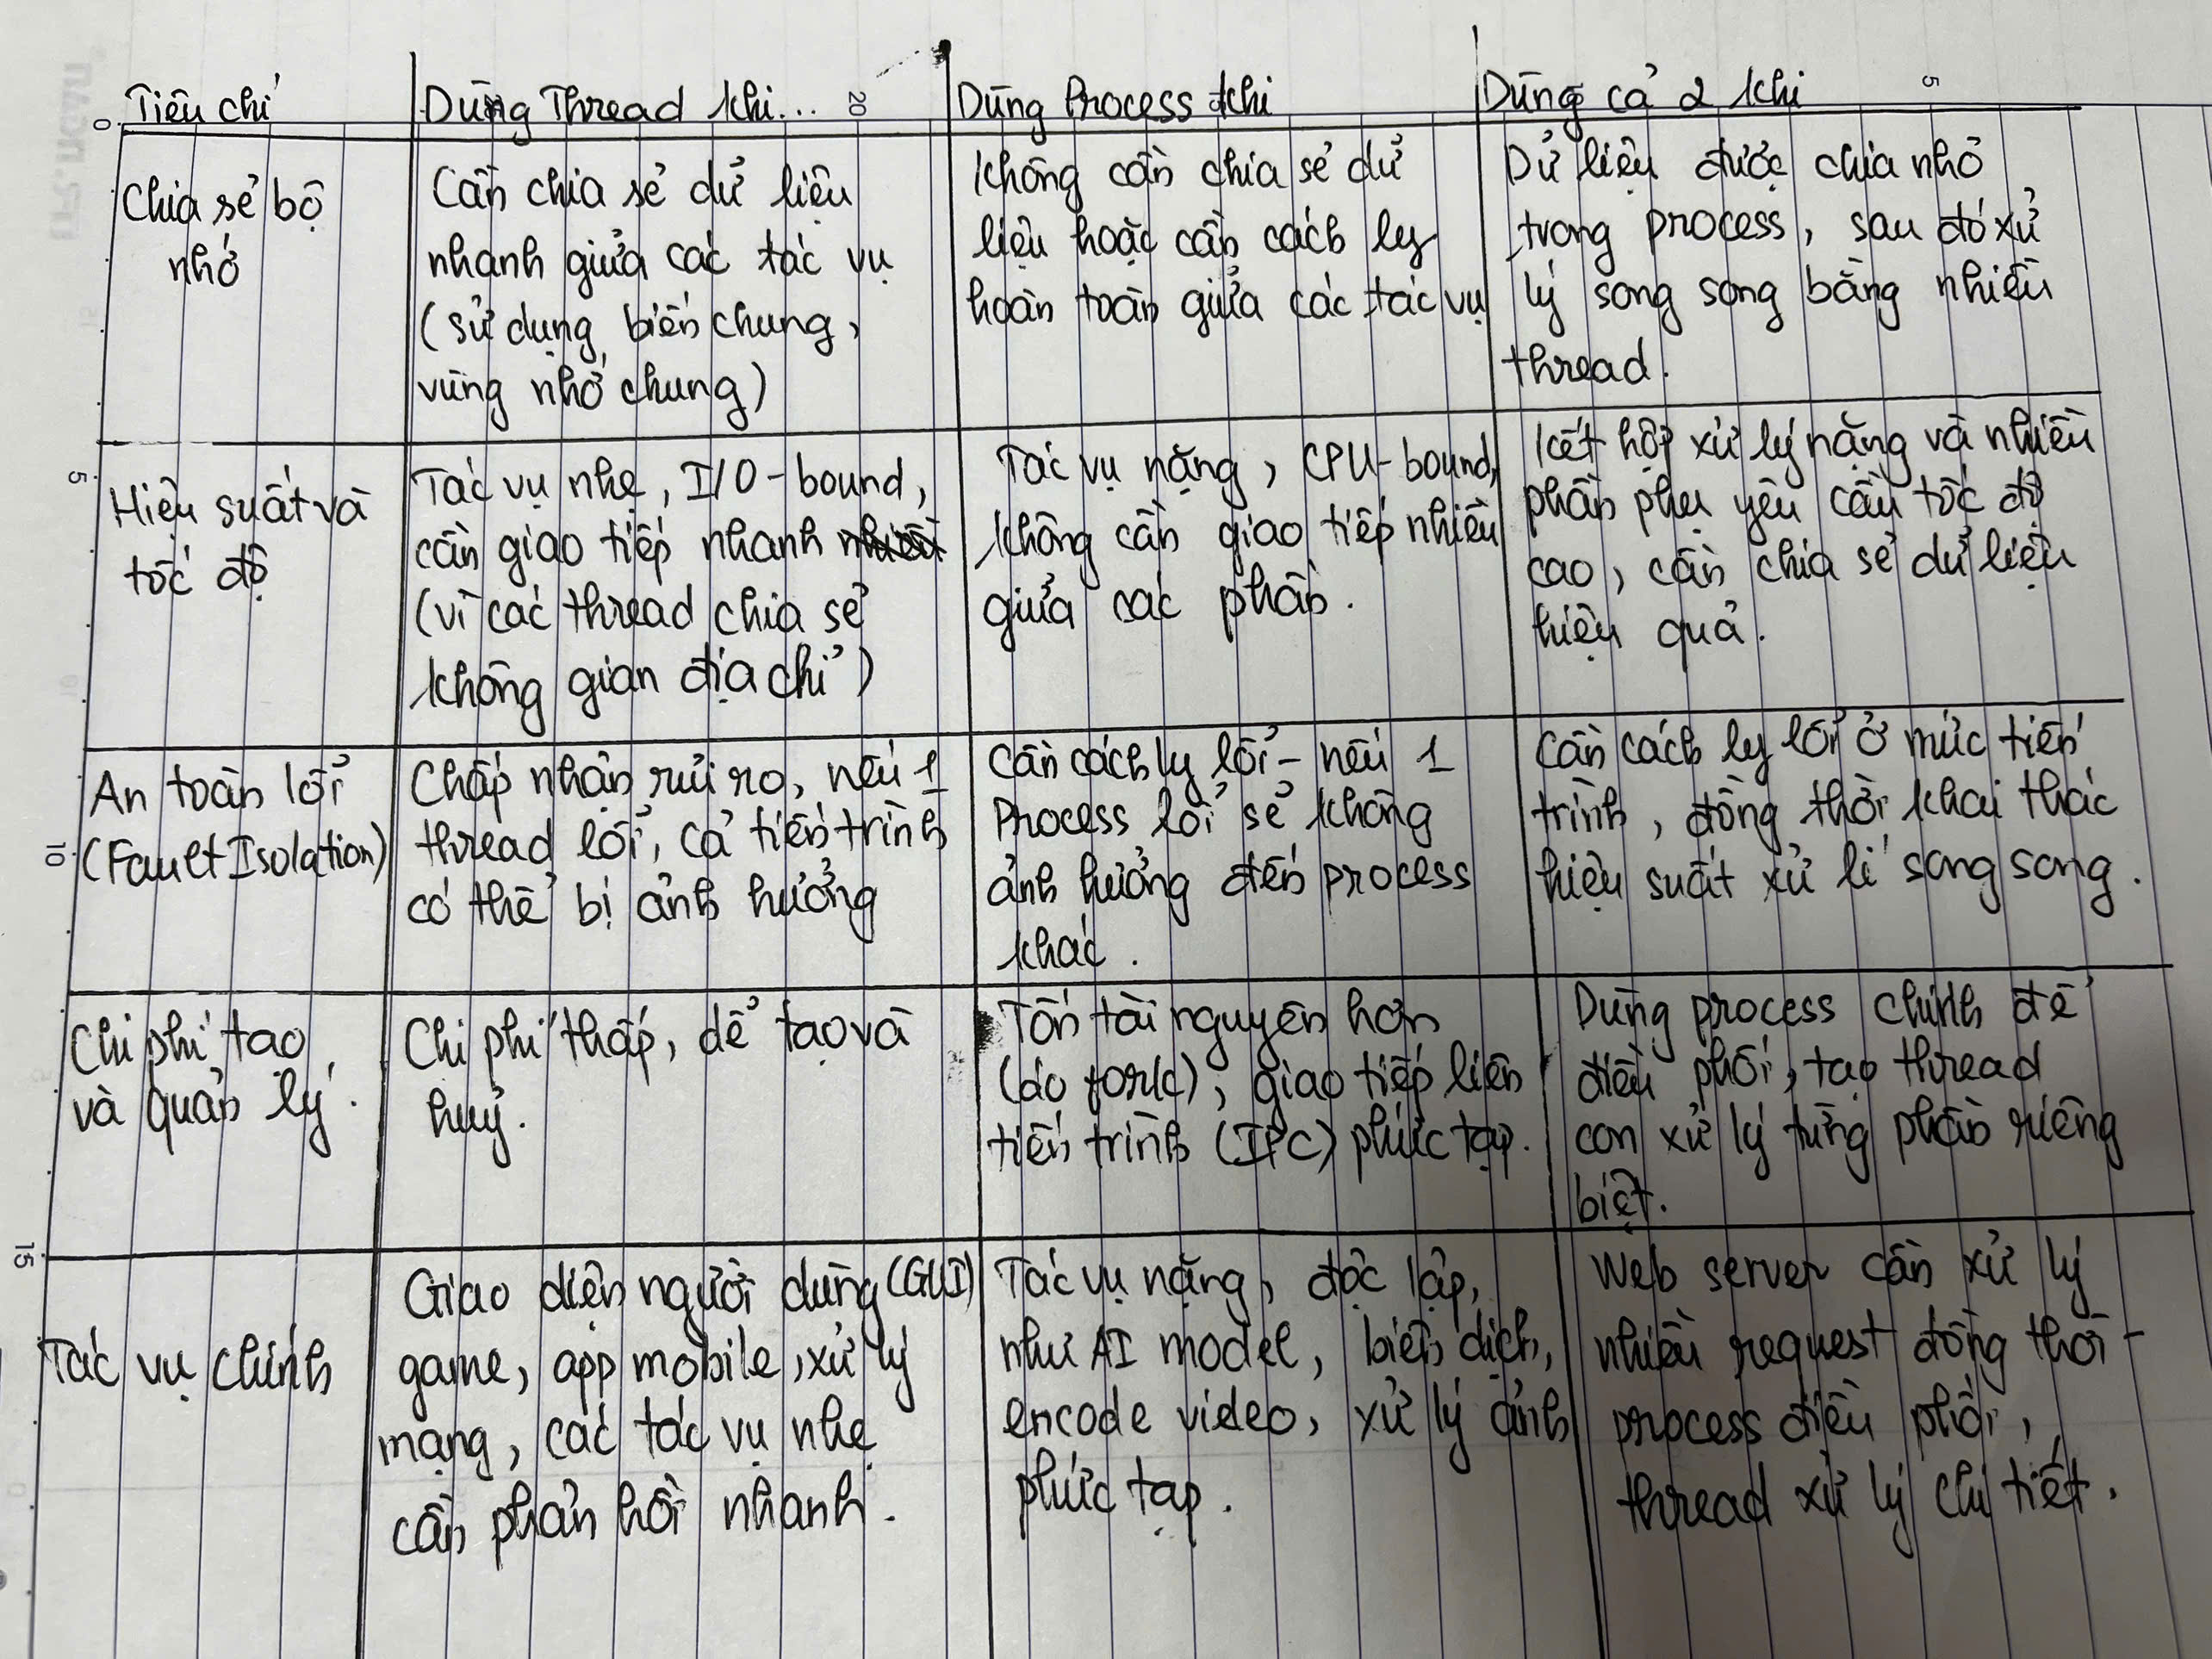 Tiêu chí
Dùng Thread khi...
Dùng Process khi
Dùng cả 2 khi
Chia sẻ bộ
nhớ
Cần chia sẻ dữ liệu
nhanh giữa các tác vụ
(sử dụng biến chung,
vùng nhớ chung)
Không cần chia sẻ dữ
liệu hoặc cần cách ly
hoàn toàn giữa các tác vụ
Dữ liệu được chia nhỏ
trong process, sau đó xử
lý song song bằng nhiều
thread.
Hiệu suất và
tốc độ
Tác vụ nhẹ, I/O-bound,
cần giao tiếp nhanh
(vì các thread chia sẻ
không gian địa chỉ)
Tác vụ nặng, CPU-bound,
không cần giao tiếp nhiều
giữa các phần.
Kết hợp xử lý nặng và nhiều
phần phụ yêu cầu tốc độ
cao, cần chia sẻ dữ liệu
hiệu quả.
An toàn lỗi
(Fault Isolation)
Chấp nhận rủi ro, nếu 1
thread lỗi, cả tiến trình
có thể bị ảnh hưởng
Cần cách ly lỗi - nếu 1
Process lỗi sẽ không
ảnh hưởng đến process
khác.
Cần cách ly lỗi ở mức tiến
trình, đồng thời khai thác
hiệu suất xử lí song song.
Chi phí tạo
và quản lý.
Chi phí thấp, dễ tạo và
huỷ.
Tốn tài nguyên hơn
(do fork), giao tiếp liên
tiến trình (IPC) phức tạp.
Dùng process chính để
điều phối, tạo thread
con xử lý từng phần riêng
biệt.
Tác vụ chính
Giao diện người dùng (GUI)
game, app mobile, xử lý
mạng, các tác vụ nhẹ
cần phản hồi nhanh.
Tác vụ nặng, độc lập,
như AI model, biên dịch,
encode video, xử lý ảnh
phức tạp.
Web server cần xử lý
nhiều request đồng thời -
process điều phối,
thread xử lý chi tiết.
0
5
10
15
20
5